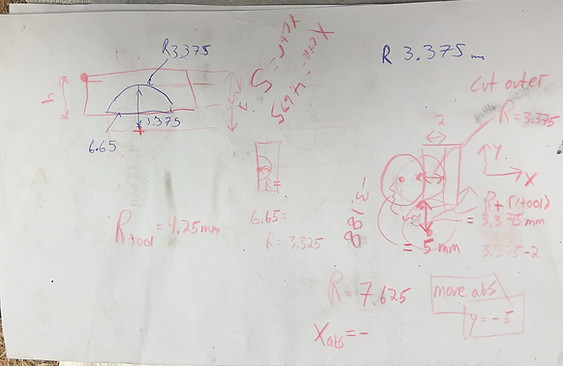 R3.375
3.375
6.65
R 3.375
cut outer
R = 3.375
2
Y
X
R+ r(tool)
= 3.375mm
3.375-2
= 5 mm
-3.188
R tool = 4.25mm
6.65=
R = 3.325
R = 7.625
X abs = -
move abs
Y = -5